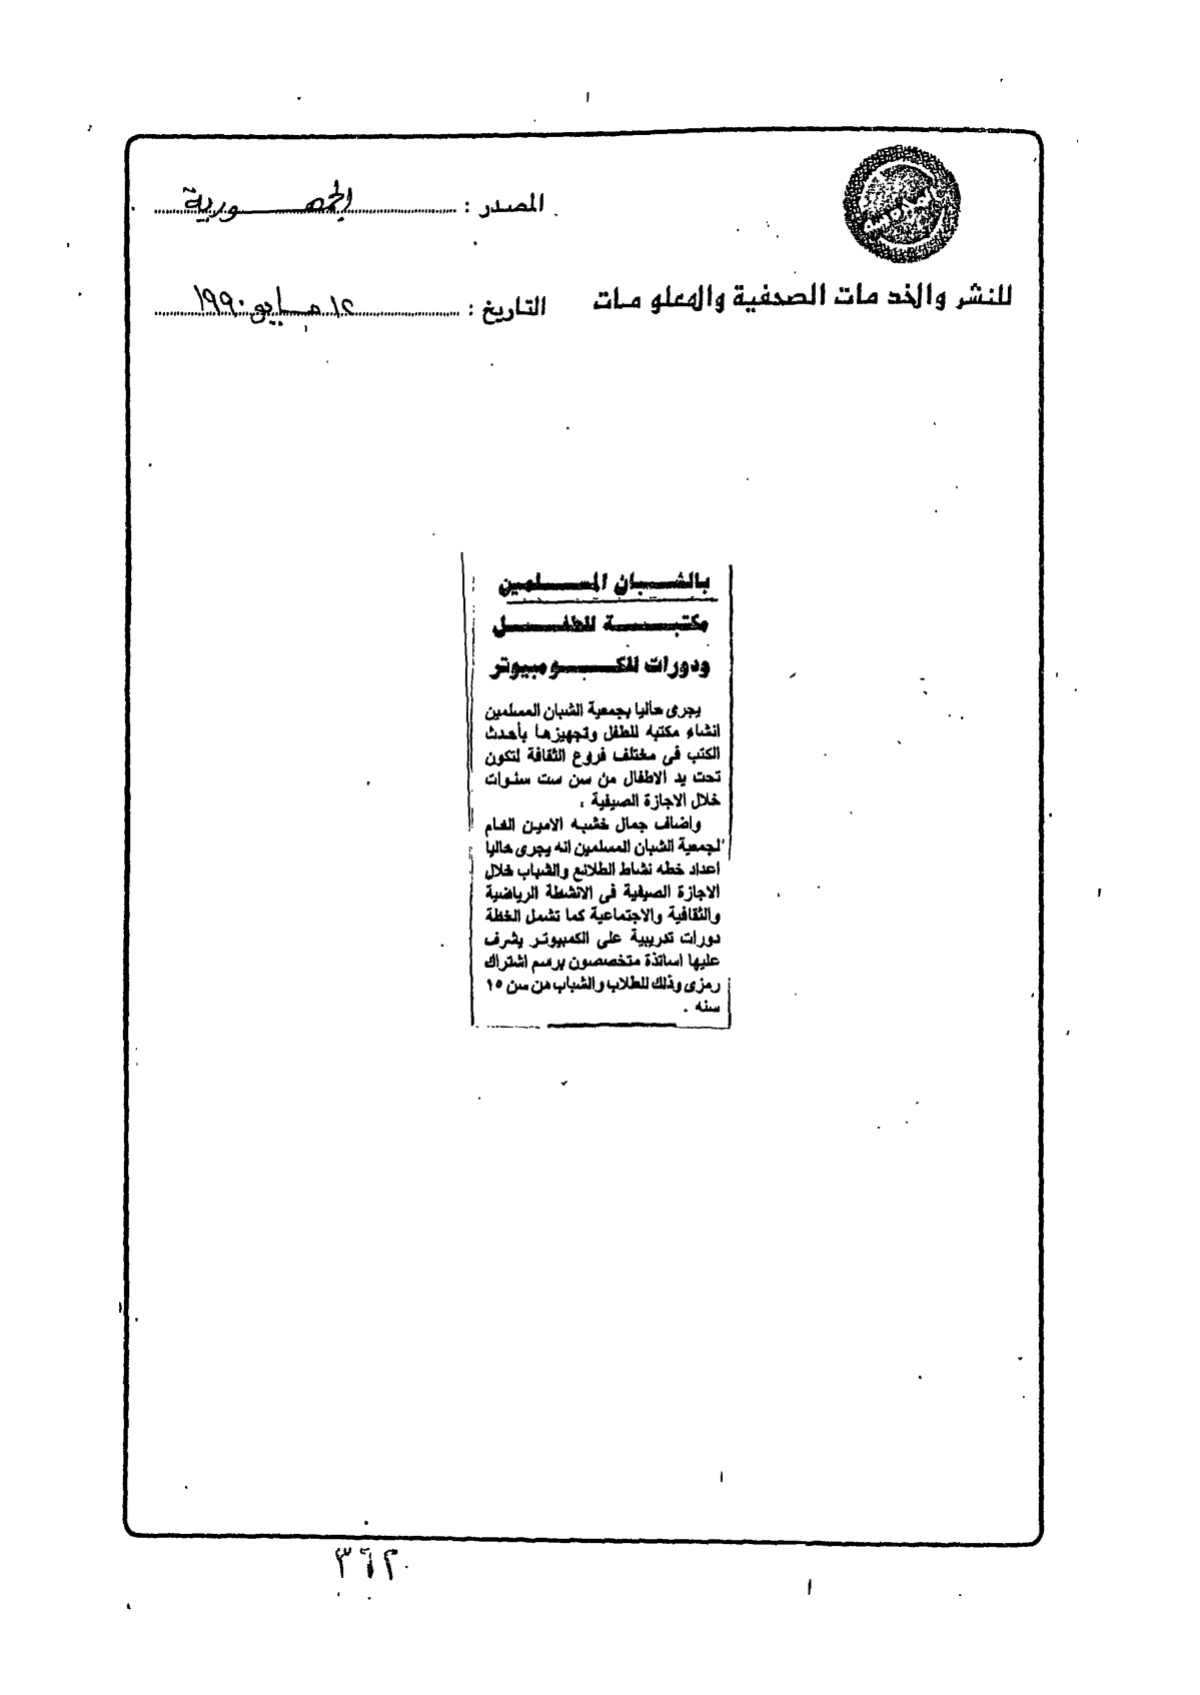 المصدر : الجمهورية
للنشر والخدمات الصحفية والمعلومات
التاريخ : ١٢ مايو ١٩٩٠
بالشبان المسلمين
مكتبة للطفل
ودورات للكومبيوتر
يجرى حاليا بجمعية الشبان المسلمين
انشاء مكتبه للطفل وتجهيزها بأحدث
الكتب فى مختلف فروع الثقافة لتكون
تحت يد الاطفال من سن ست سنوات
خلال الاجازة الصيفية .
واضاف جمال خشبه الامين العام
لجمعية الشبان المسلمين انه يجرى حاليا
اعداد خطه نشاط الطلائع والشباب خلال
الاجازة الصيفية فى الانشطة الرياضية
والثقافية والاجتماعية كما تشمل الخطة
دورات تدريبية على الكمبيوتر يشرف
عليها اساتذة متخصصون برسم اشتراك
رمزى وذلك للطلاب والشباب من سن ١٥
سنه .